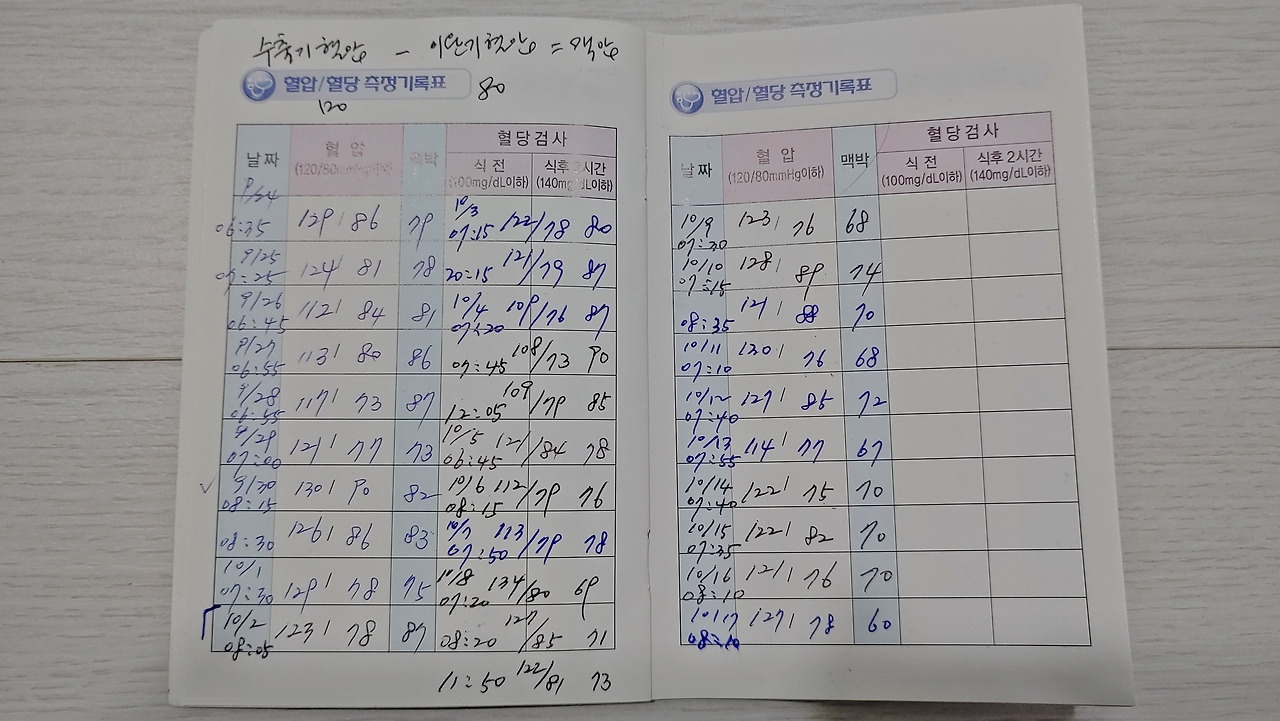 수축기혈압 - 이완기혈압 = 맥압
혈압/혈당 측정기록표
120 80
날짜 혈압 (120/80mmHg이하) 맥박 혈당검사
식전 (100mg/dL이하) 식후 2시간 (140mg/dL이하)
9/24 06:35 129/ 86 79 10/3 07:15 122/78 80
9/25 07:25 124/ 81 78 20:15 121/79 87
9/26 06:45 112/ 84 81 10/4 07:20 109/76 87
9/27 06:55 113/ 80 86 07:45 108/73 90
9/28 06:55 117/ 73 87 12:05 109/79 85
9/29 07:00 121/ 77 73 10/5 06:45 121/84 78
9/30 08:15 130/ 90 82 10/6 08:15 112/79 76
08:30 126/ 86 83 10/7 07:50 113/79 78
10/1 07:30 129/ 78 75 10/8 07:20 134/80 69
10/2 08:05 123/ 78 87 08:20 127/85 71
11:50 122/81 73
혈압/혈당 측정기록표
날짜 혈압 (120/80mmHg이하) 맥박 혈당검사
식전 (100mg/dL이하) 식후 2시간 (140mg/dL이하)
10/9 07:30 123/ 76 68
10/10 07:15 128/ 89 74
08:35 121/ 88 70
10/11 07:10 130/ 76 68
10/12 07:40 127/ 85 72
10/13 07:55 114/ 77 67
10/14 07:40 122/ 75 70
10/15 07:35 122/ 82 70
10/16 08:10 121/ 76 70
10/17 08:10 127/ 78 60